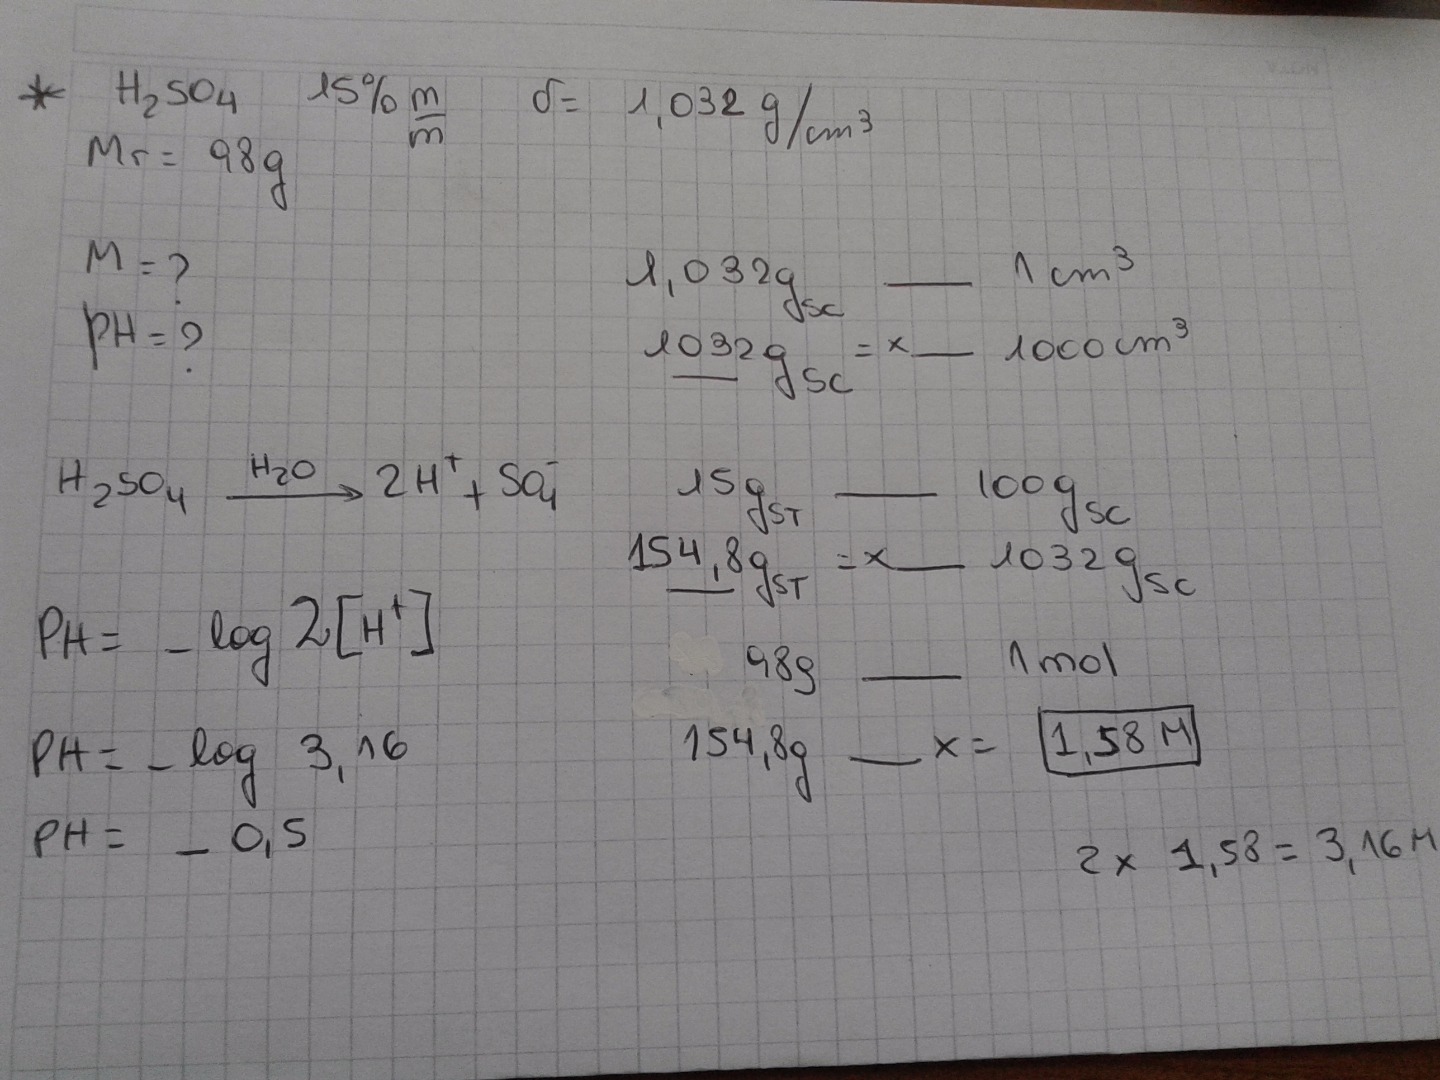 * H₂SO₄ 15% m/m δ= 1,032 g/cm³
Mr= 98g
M=?
PH=?
1,032g SC — 1 cm³
1032g SC = x — 1000cm³
H₂SO₄ H₂O → 2H⁺ + SO₄⁻
15g ST — 100g SC
154,8g ST = x — 1032g SC
PH= - log 2[H⁺]
98g — 1mol
PH= - log 3,16
154,8g — x= 1,58 M
PH= - 0,5
2x 1,58= 3,16 M